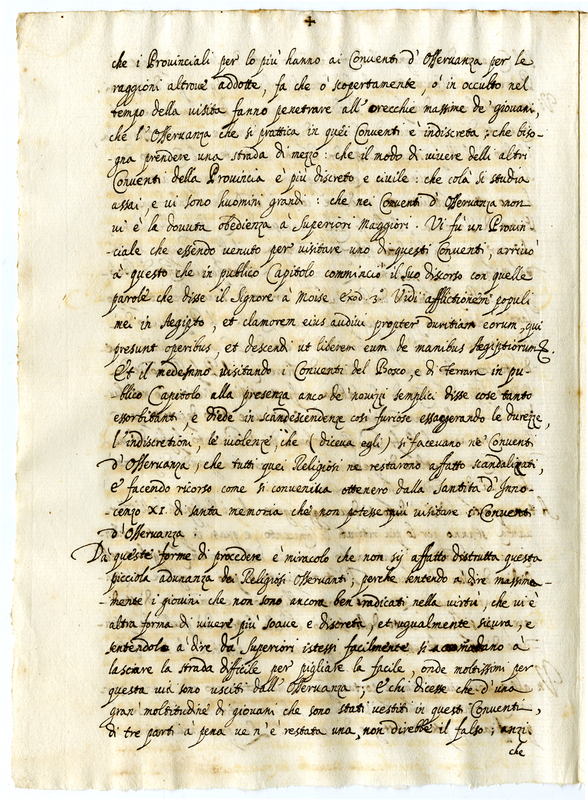 che i Provinciali per lo più hanno ai Conventi d'Osservanza per le
raggioni altrove addotte, fa che ò scopertamente, ò in occulto nel
tempo della visita fanno penetrare all'orecchie massime de' giovani,
che l'Osservanza che si prattica in quei Conventi è indiscreta; che biso-
-gna prendere una strada di mezzo: che il modo di vivere delli altri
Conventi della Provincia è più discreto e civile: che colà si studia
assai e vi sono huomini grandi: che nei Conventi d'Osservanza non
vi è la dovuta obedienza à Superiori Maggiori. Vi fu un Provin-
-ciale che essendo venuto per visitare uno di questi Conventi, arrivò
à questo che in publico Capitolo comminciò il suo discorso con quelle
parole che disse il Signore à Moise exod. 3.º Vidi afflictionem populi
mei in Aegipto, et clamorem eius audivi propter duritiam eorum, qui
presunt operibus, et descendi ut liberem eum de manibus Aegiptiorum &.
Et il medesimo visitando i Conventi del Bosco, e di Ferrara in pu-
-blico Capitolo alla presenza anco de novizzi semplici disse cose tanto
essorbitanti, e diede in scandescendenze così furiose essaggerando le durezze,
l'indiscretioni, le violenze, che (diceva egli) si facevano ne' Conventi
d'Osservanza, che tutti quei Religiosi ne restarono affatto scandalizati,
e' facendo ricorso come si conveniva ottenero dalla Santità d'Inno-
-cenzo XI. di santa memoria che non potesse più visitare i Conventi
d'Osservanza.
Da queste forme di procedere è miracolo che non sij affatto distrutta questa
picciola adunanza dei Religiosi Osservanti; perche sentendo à dire massima-
-mente i giovini che non sono ancora ben radicati nella virtù, che vi è
altra forma di vivere più soave e discreta, et ugualmente sicura, e
sentendolo à dire da Superiori istessi facilmente si accomodano à
lasciare la strada difficile per pigliare la facile, onde moltissimi per
questa via sono usciti dall'Osservanza; E chi dicesse che d'una
gran moltitudine di giovani che sono stati vestiti in questi Conventi,
di tre parti à pena ve n'è restata una, non direbbe il falso; anzi
che